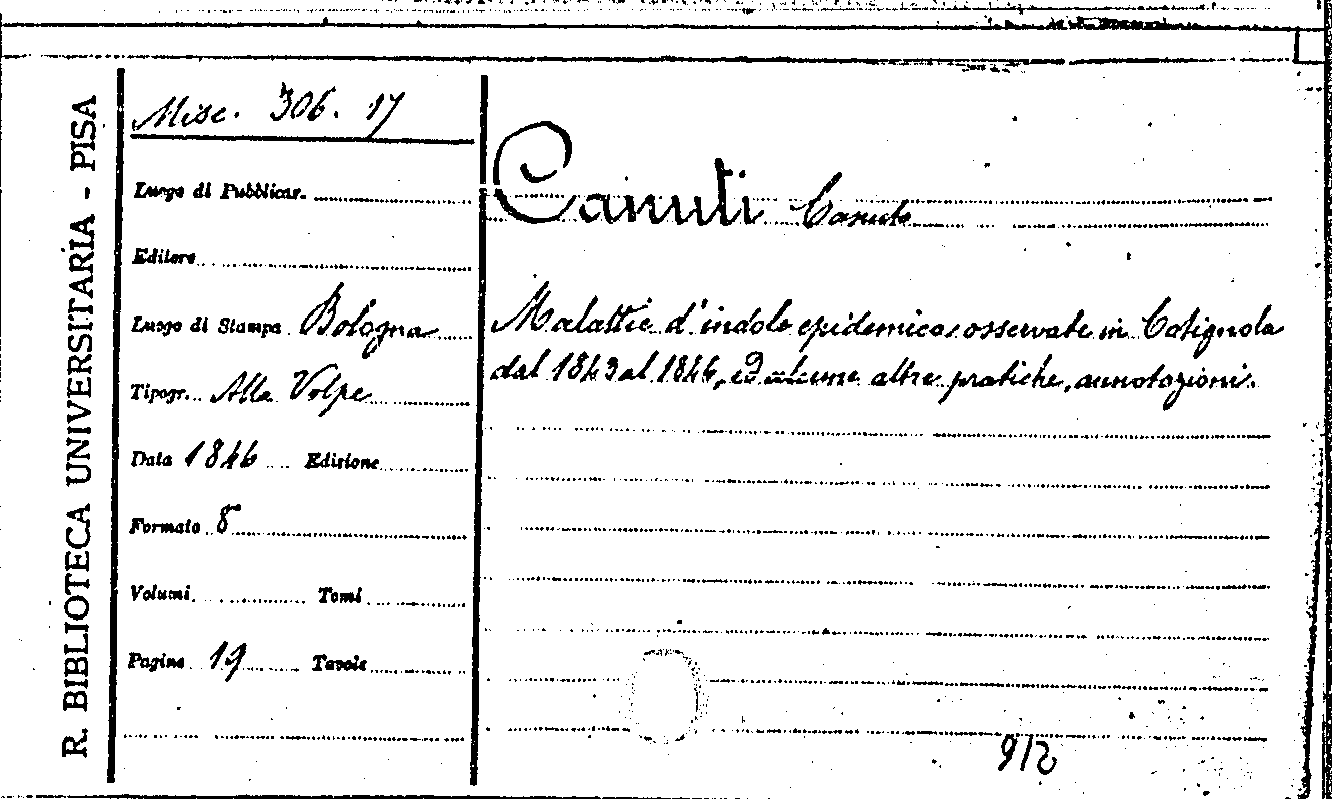 R. BIBLIOTECA UNIVERSITARIA - PISA
Misc. 306. 17
Luogo di Pubblicaz.
Editore
Luogo di Stampa Bologna
Tipogr. Alla Volpe
Data 1846 Edizione
Formato 8°
Volumi Tomi
Pagine 19 Tavole
Canuti Canuto
Malattie d'indole epidemica osservate in Cotignola
dal 1843 al 1846, ed alcune altre pratiche annotazioni.
912